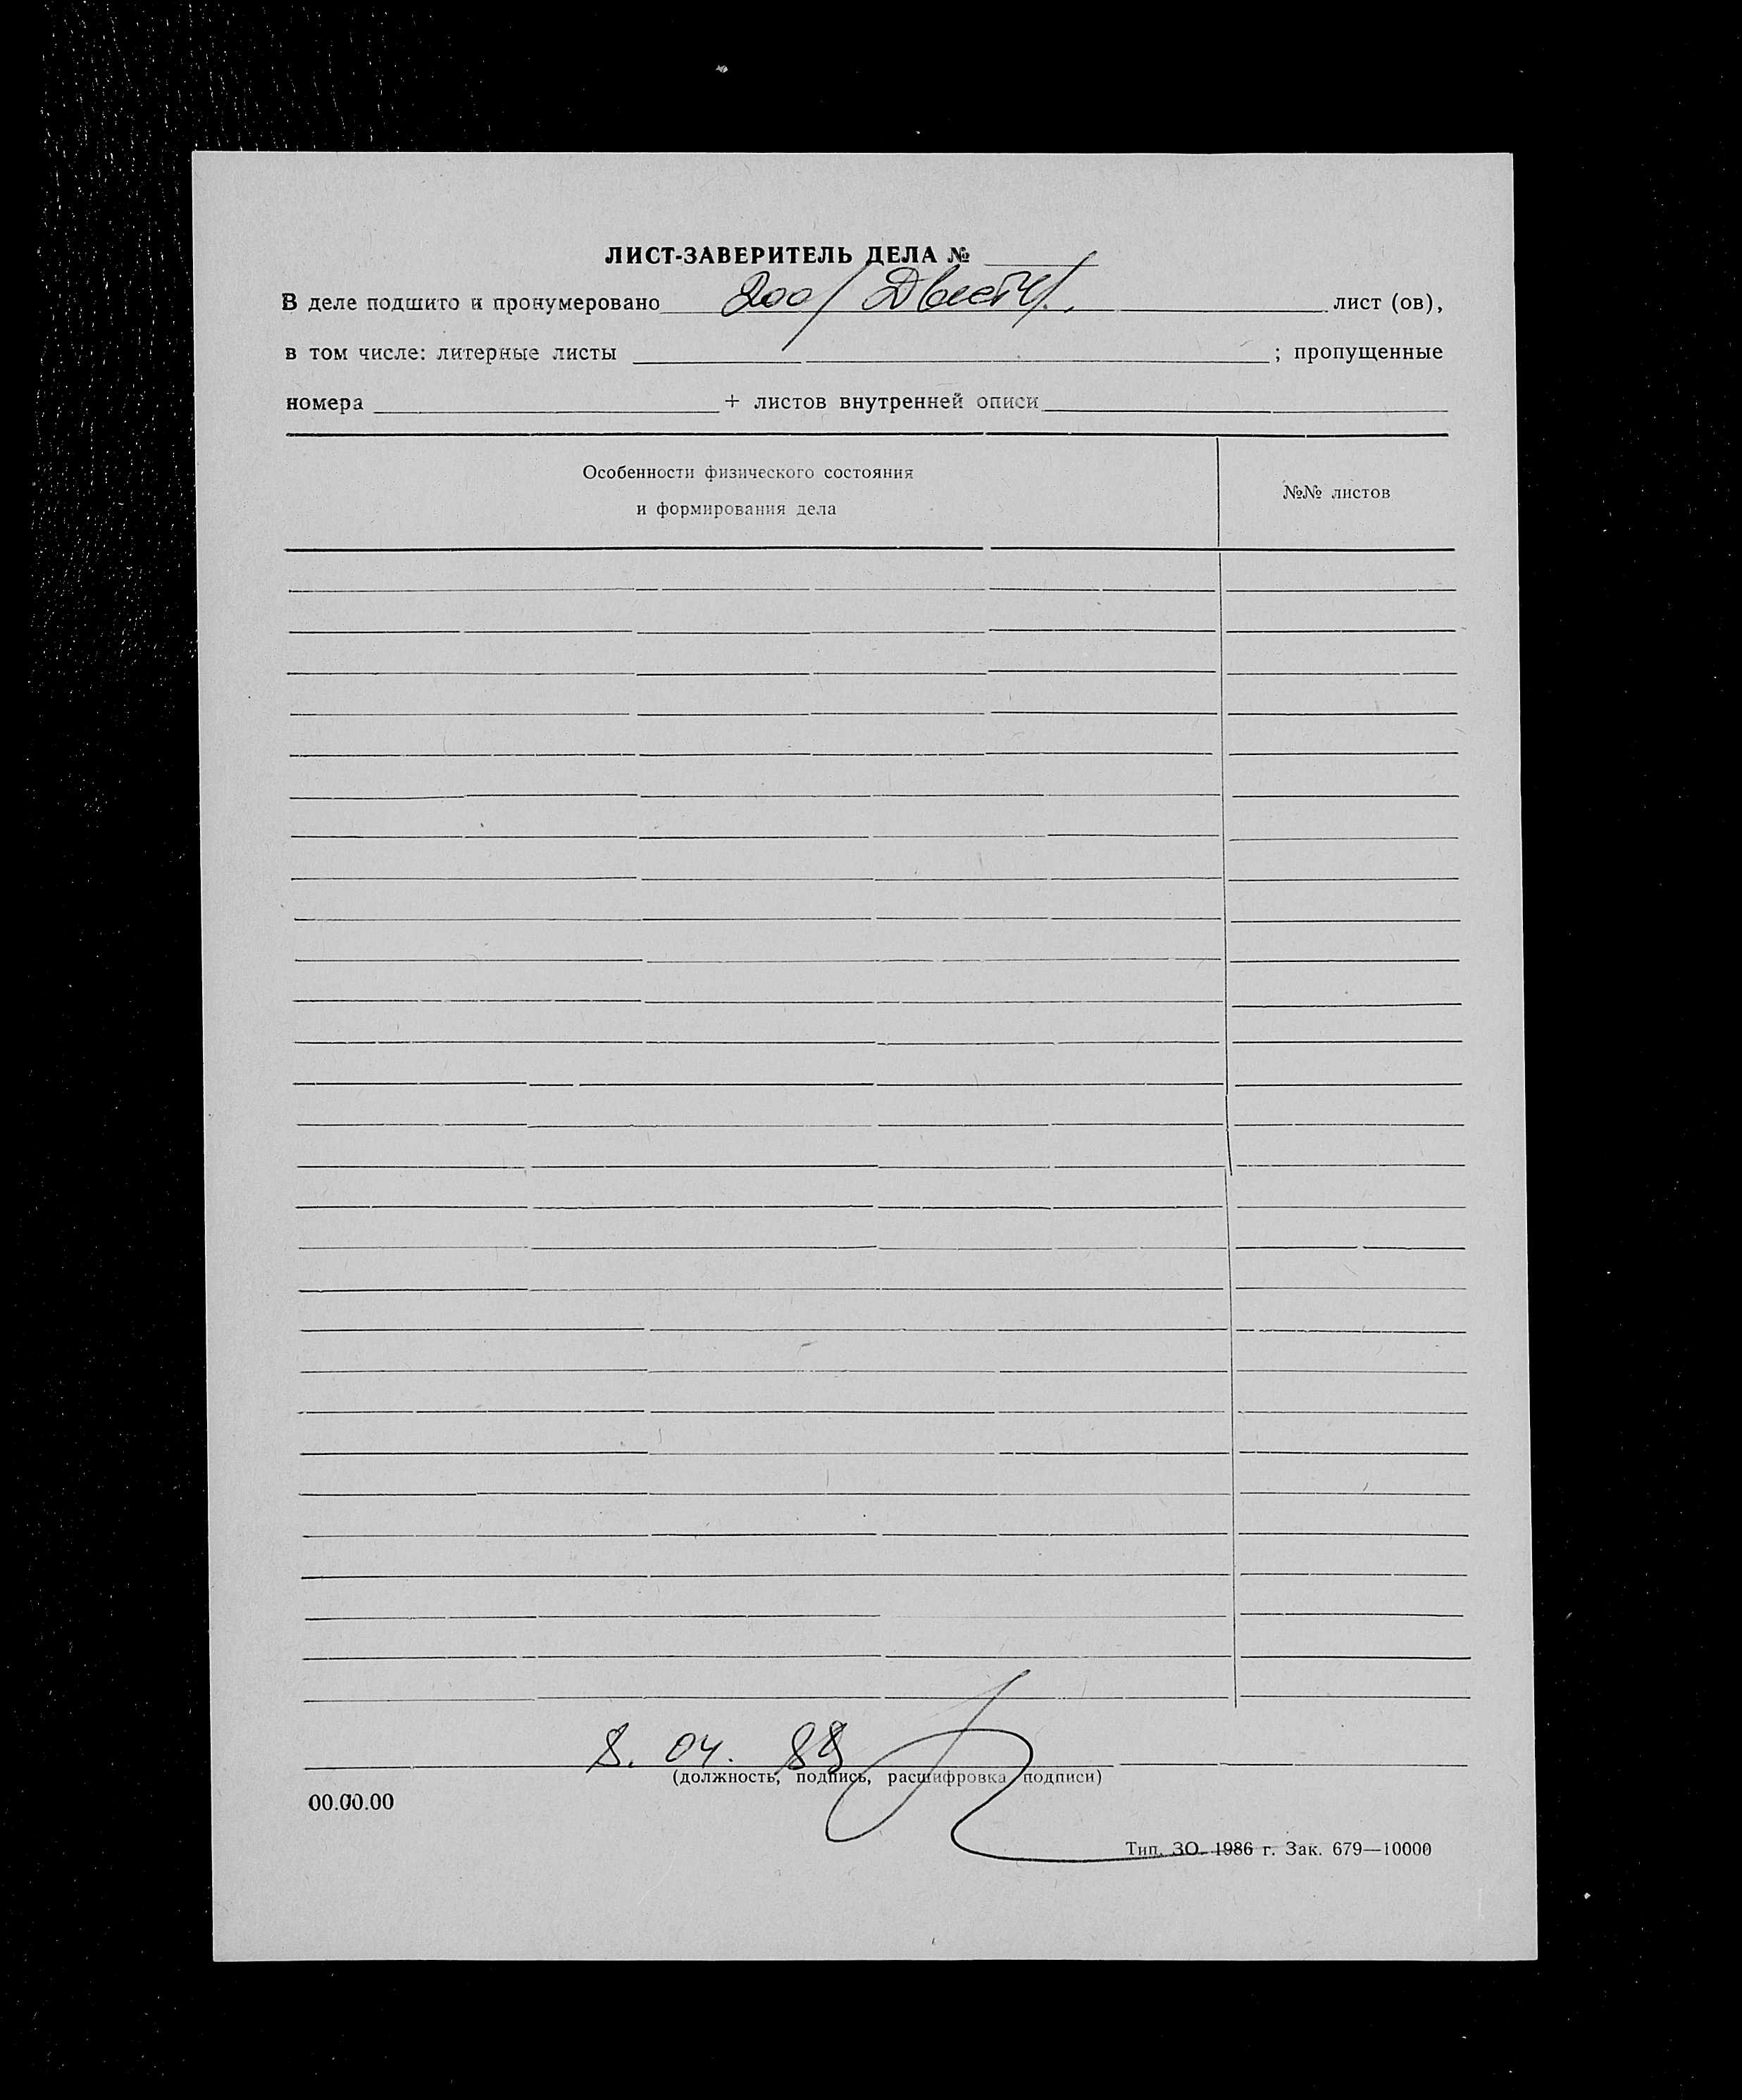 ЛИСТ-ЗАВЕРИТЕЛЬ ДЕЛА №
В деле подшито и пронумеровано 200 / Двести /. лист (ов),
в том числе: литерные листы ; пропущенные
номера + листов внутренней описи
Особенности физического состояния
и формирования дела
№№ листов
8. 04. 88
(должность, подпись, расшифровка подписи)
00.00.00
Тип. ЗО. 1986 г. Зак. 679—10000